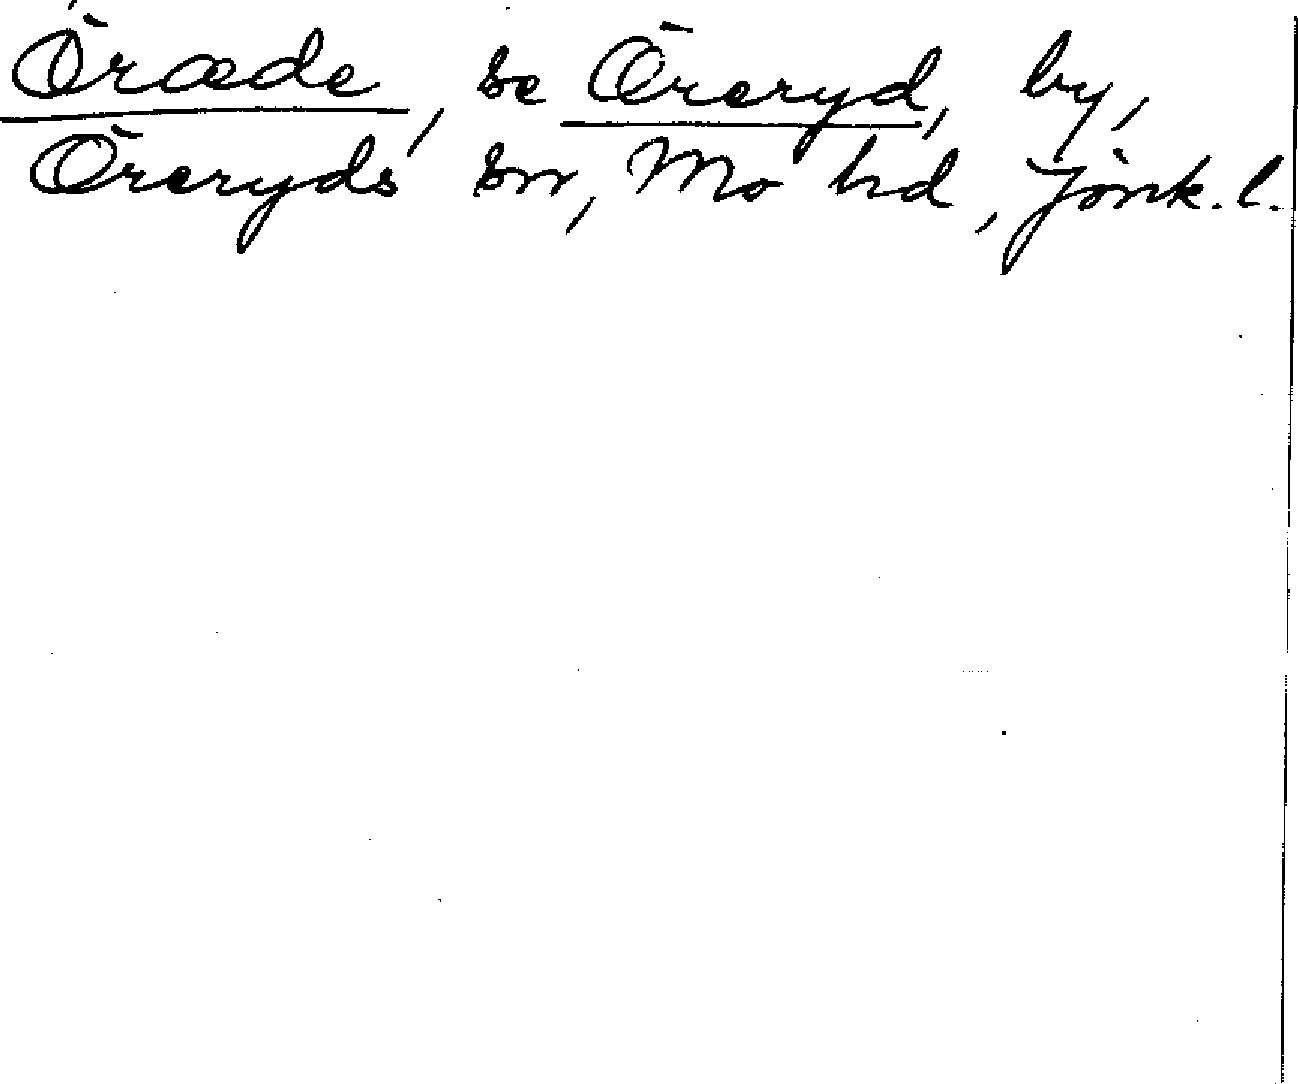 Öræde, se Öreryd, by,
Öreryds sn, Mo hd, Jönk. l.